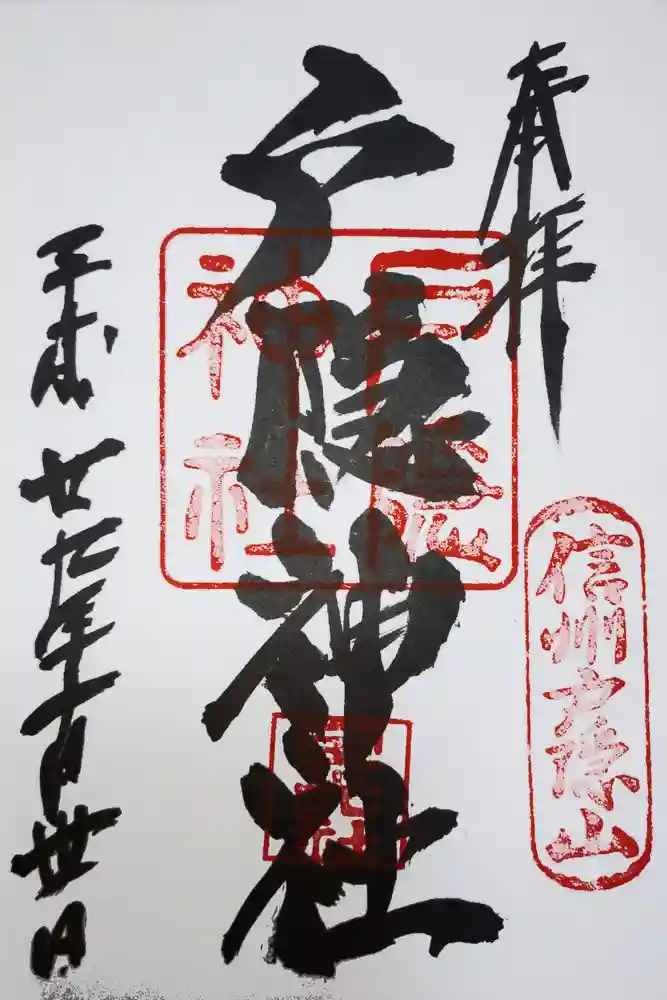 奉拝
信州戸隠山
戸隠神社
戸隠
神社
平成廿七年十月丗日